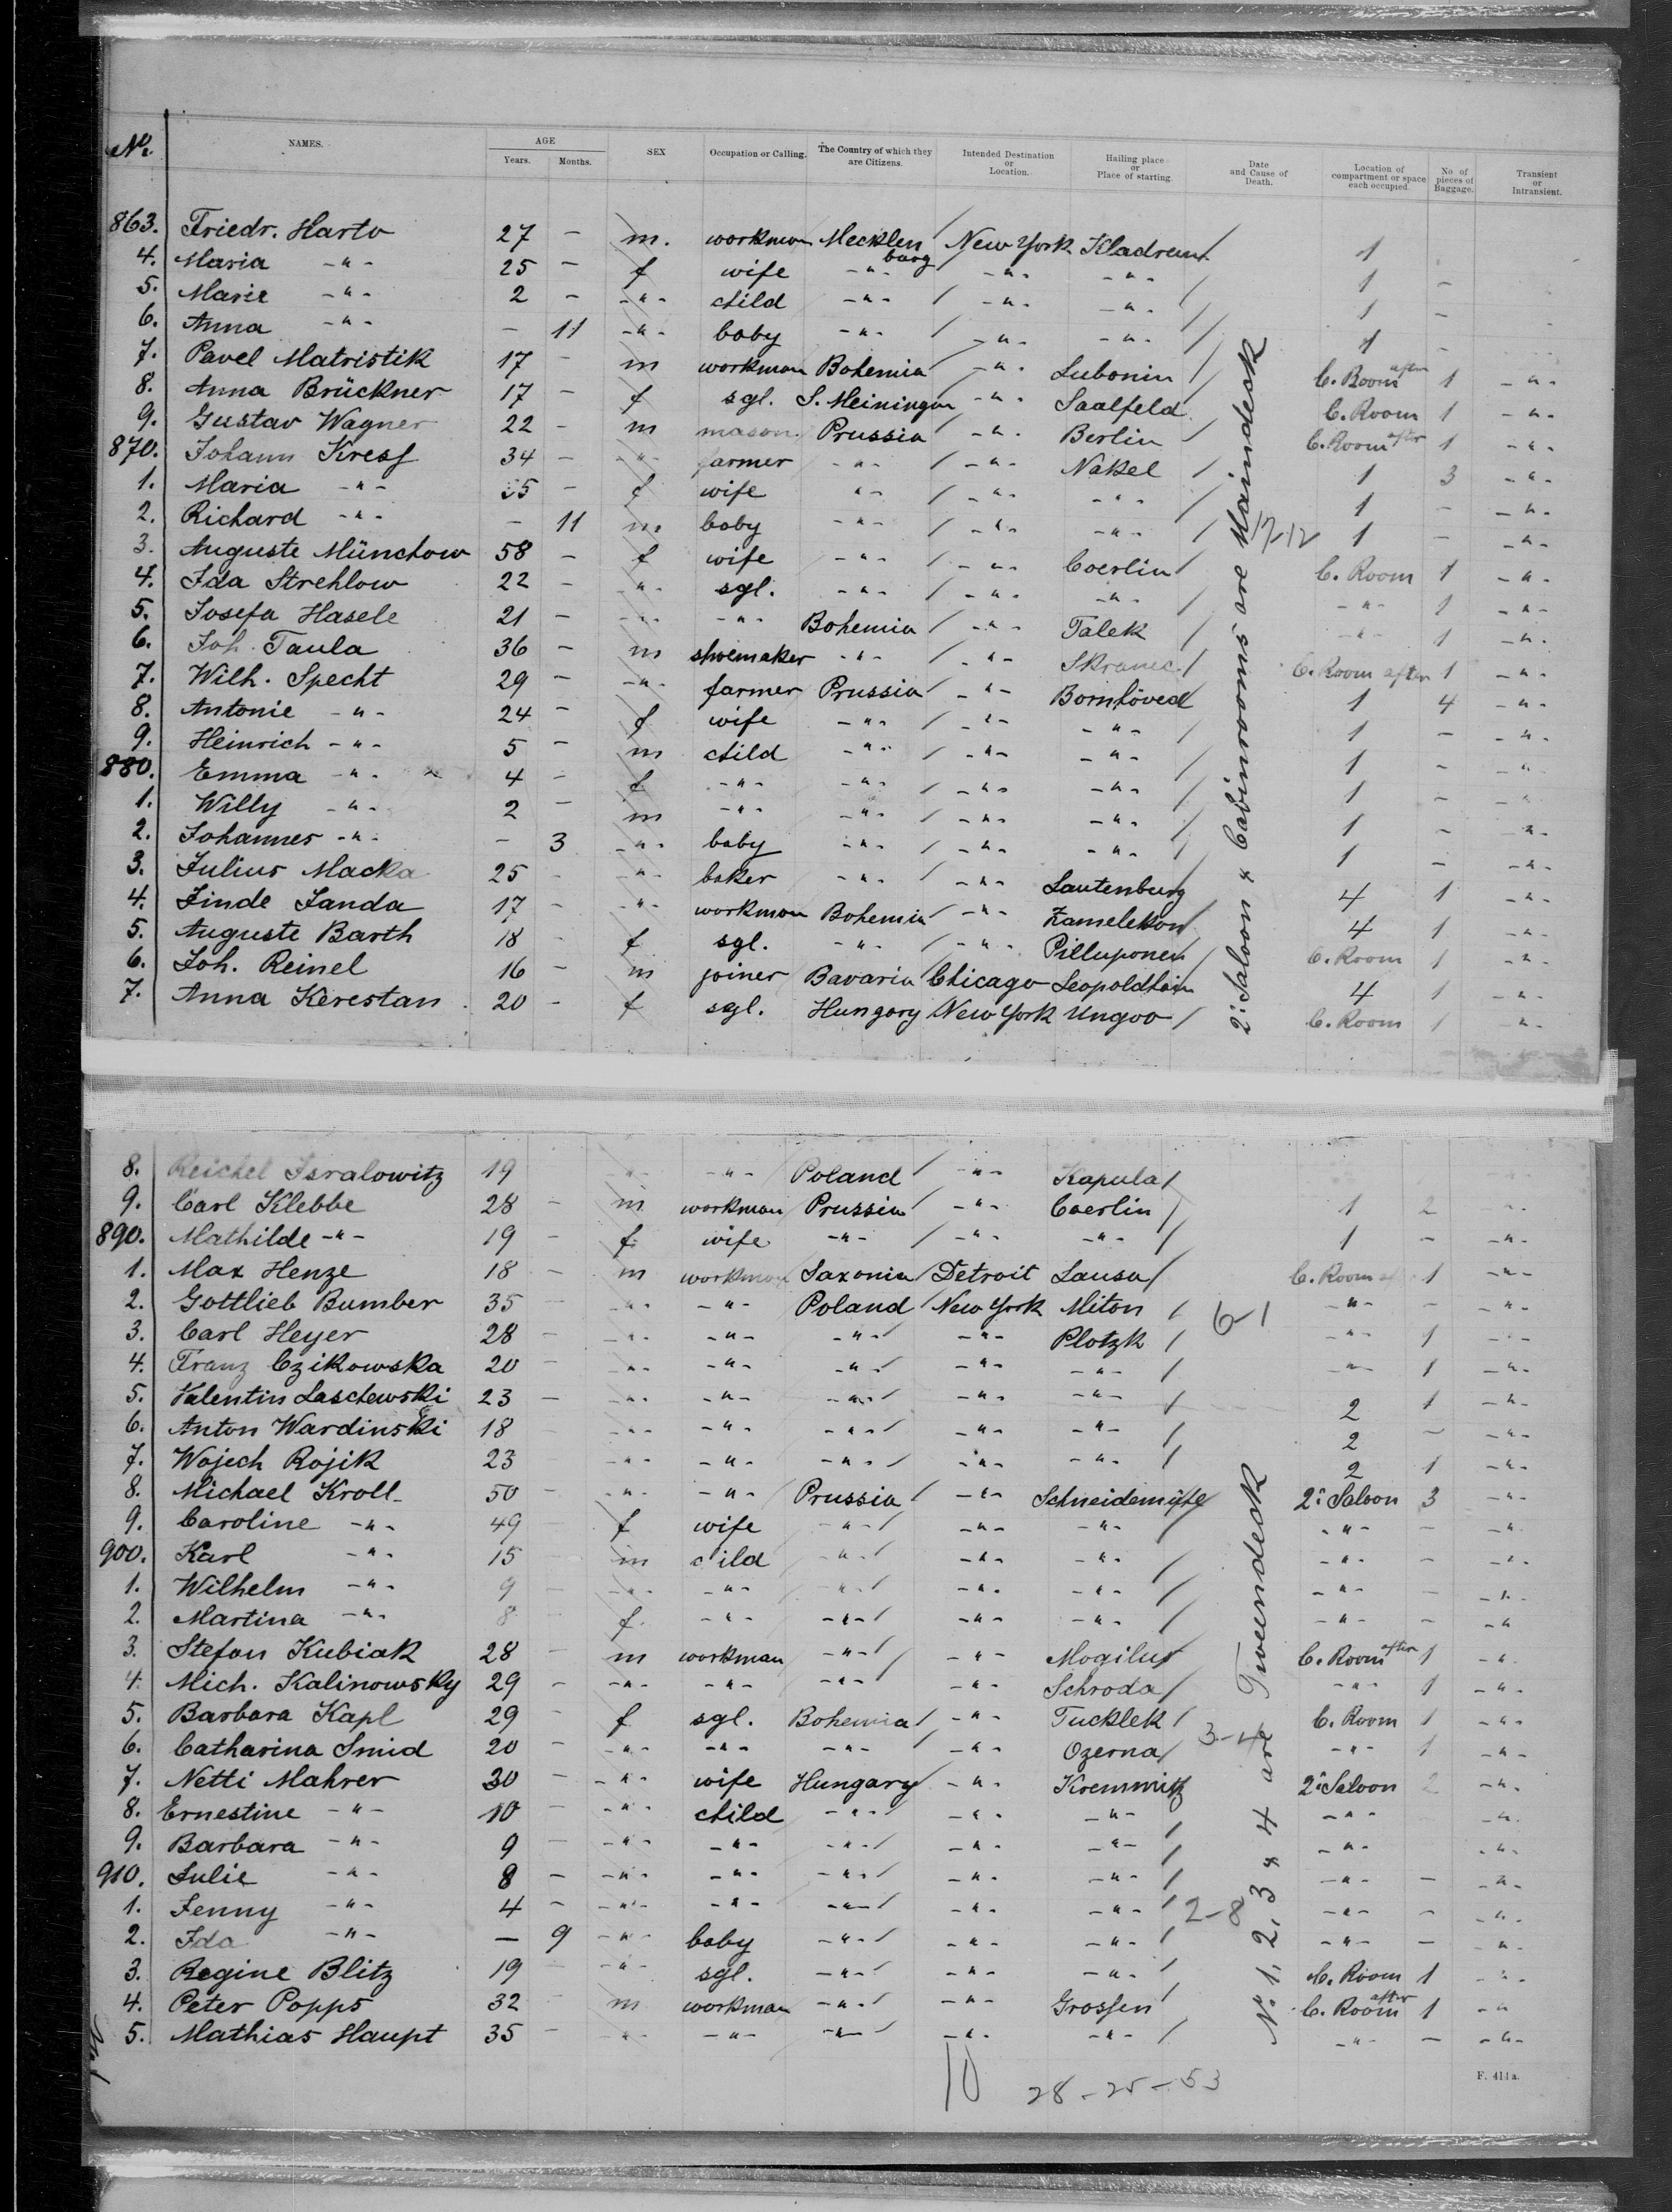 No. NAMES. AGE Years. Months. SEX Occupation or Calling. The Country of which they are Citizens. Intended Destination or Location. Hailing place or Place of starting. Date and Cause of Death. Location of compartment or space each occupied. No of pieces of Baggage. Transient or Intransient.
863. Friedr. Harto 27 - m. workman Mecklenburg New York Kladrum 1
4. Maria -"- 25 - f wife -"- -"- -"- 1 -
5. Marie -"- 2 - -"- child -"- -"- -"- 1 -
6. Anna -"- - 11 -"- baby -"- -"- -"- 1 -
7. Pavel Matristik 17 - m workman Bohemia -"- Lubonin C. Room after 1 -"-
8. Anna Brückner 17 - f sgl. S. Meiningen -"- Saalfeld C. Room 1 -"-
9. Gustav Wagner 22 - m mason Prussia -"- Berlin C. Room after 1 -"-
870. Johann Kress 34 - -"- farmer -"- -"- Nakel 1 3 -"-
1. Maria -"- 35 - f wife -"- -"- -"- 1 - -"-
2. Richard -"- - 11 m. baby -"- -"- -"- 1 - -"-
3. Auguste Münchow 58 - f wife -"- -"- Coerlin C. Room 1 -"-
4. Ida Strehlow 22 - -"- sgl. -"- -"- -"- -"- 1 -"-
5. Josefa Hasele 21 - -"- -"- Bohemia -"- Talek -"- 1 -"-
6. Joh. Taula 36 - m shoemaker -"- -"- Skranec C. Room after 1 -"-
7. Wilh. Specht 29 - -"- farmer Prussia -"- Bornhöved 1 4 -"-
8. Antonie -"- 24 - f wife -"- -"- -"- 1 - -"-
9. Heinrich -"- 5 - m child -"- -"- -"- 1 - -"-
880. Emma -"- 4 - f -"- -"- -"- -"- 1 - -"-
1. Willy -"- 2 - m -"- -"- -"- -"- 1 - -"-
2. Johannes -"- - 3 -"- baby -"- -"- -"- 1 - -"-
3. Julius Macka 25 - -"- baker -"- -"- Lautenburg 4 1 -"-
4. Jinde Janda 17 - -"- workman Bohemia -"- Zamelekon 4 1 -"-
5. Auguste Barth 18 - f sgl. -"- -"- Pilluponen C. Room 1 -"-
6. Joh. Reinel 16 - m joiner Bavaria Chicago Leopoldhain 4 1 -"-
7. Anna Kerestan 20 - f sgl. Hungary New York Ungoo C. Room 1 -"-
2: Saloon & Cabinrooms are Maindeck
12/12
8. Reichel Isralowitz 19 -"- -"- Poland -"- Kapula
9. Carl Klebbe 28 - m workman Prussia -"- Coerlin 1 2 -"-
890. Mathilde -"- 19 - f wife -"- -"- -"- 1 - -"-
1. Max Henze 18 - m workman Saxonia Detroit Lausa C. Room 1 -"-
2. Gottlieb Bumber 35 - -"- -"- Poland New York Miton 6-1 -"- - -"-
3. Carl Heyer 28 - -"- -"- -"- -"- Plotzk -"- 1 -"-
4. Franz Czikowska 20 - -"- -"- -"- -"- -"- -"- 1 -"-
5. Valentin Laschewski 23 - -"- -"- -"- -"- -"- 2 1 -"-
6. Anton Wardinski 18 - -"- -"- -"- -"- -"- 2 - -"-
7. Wojech Rojik 23 - -"- -"- -"- -"- -"- 2 1 -"-
8. Michael Kroll 50 - -"- -"- Prussia -"- Schneidemühl 2: Saloon 3 -"-
9. Caroline -"- 49 f wife -"- -"- -"- -"- - -"-
900. Karl -"- 15 m child -"- -"- -"- -"- - -"-
1. Wilhelm -"- 9 -"- -"- -"- -"- -"- -"- - -"-
2. Martina -"- 8 f. -"- -"- -"- -"- -"- - -"-
3. Stefan Kubiak 28 - m workman -"- -"- Mogilus C. Room after 1 -"-
4. Mich. Kalinowsky 29 - -"- -"- -"- -"- Schroda -"- 1 -"-
5. Barbara Kapl 29 - f sgl. Bohemia -"- Tucklek C. Room 1 -"-
6. Catharina Smid 20 - -"- -"- -"- -"- Ozerna 3-4 -"- 1 -"-
7. Netti Mahrer 30 - -"- wife Hungary -"- Kremmitz 2: Saloon 2 -"-
8. Ernestine -"- 10 - -"- child -"- -"- -"- -"- -"-
9. Barbara -"- 9 - -"- -"- -"- -"- -"- -"- -"-
910. Julie -"- 8 - -"- -"- -"- -"- -"- -"- - -"-
1. Jenny -"- 4 - -"- -"- -"- -"- -"- 2-8 -"- - -"-
2. Ida -"- - 9 -"- baby -"- -"- -"- -"- - -"-
3. Regine Blitz 19 - -"- sgl. -"- -"- -"- C. Room 1 -"-
4. Peter Popps 32 - m workman -"- -"- Grossen C. Room after 1 -"-
5. Mathias Haupt 35 - -"- -"- -"- -"- -"- -"- - -"-
No 1, 2, 3 & 4 are Tweendeck
10 28-25-53
F. 411a.